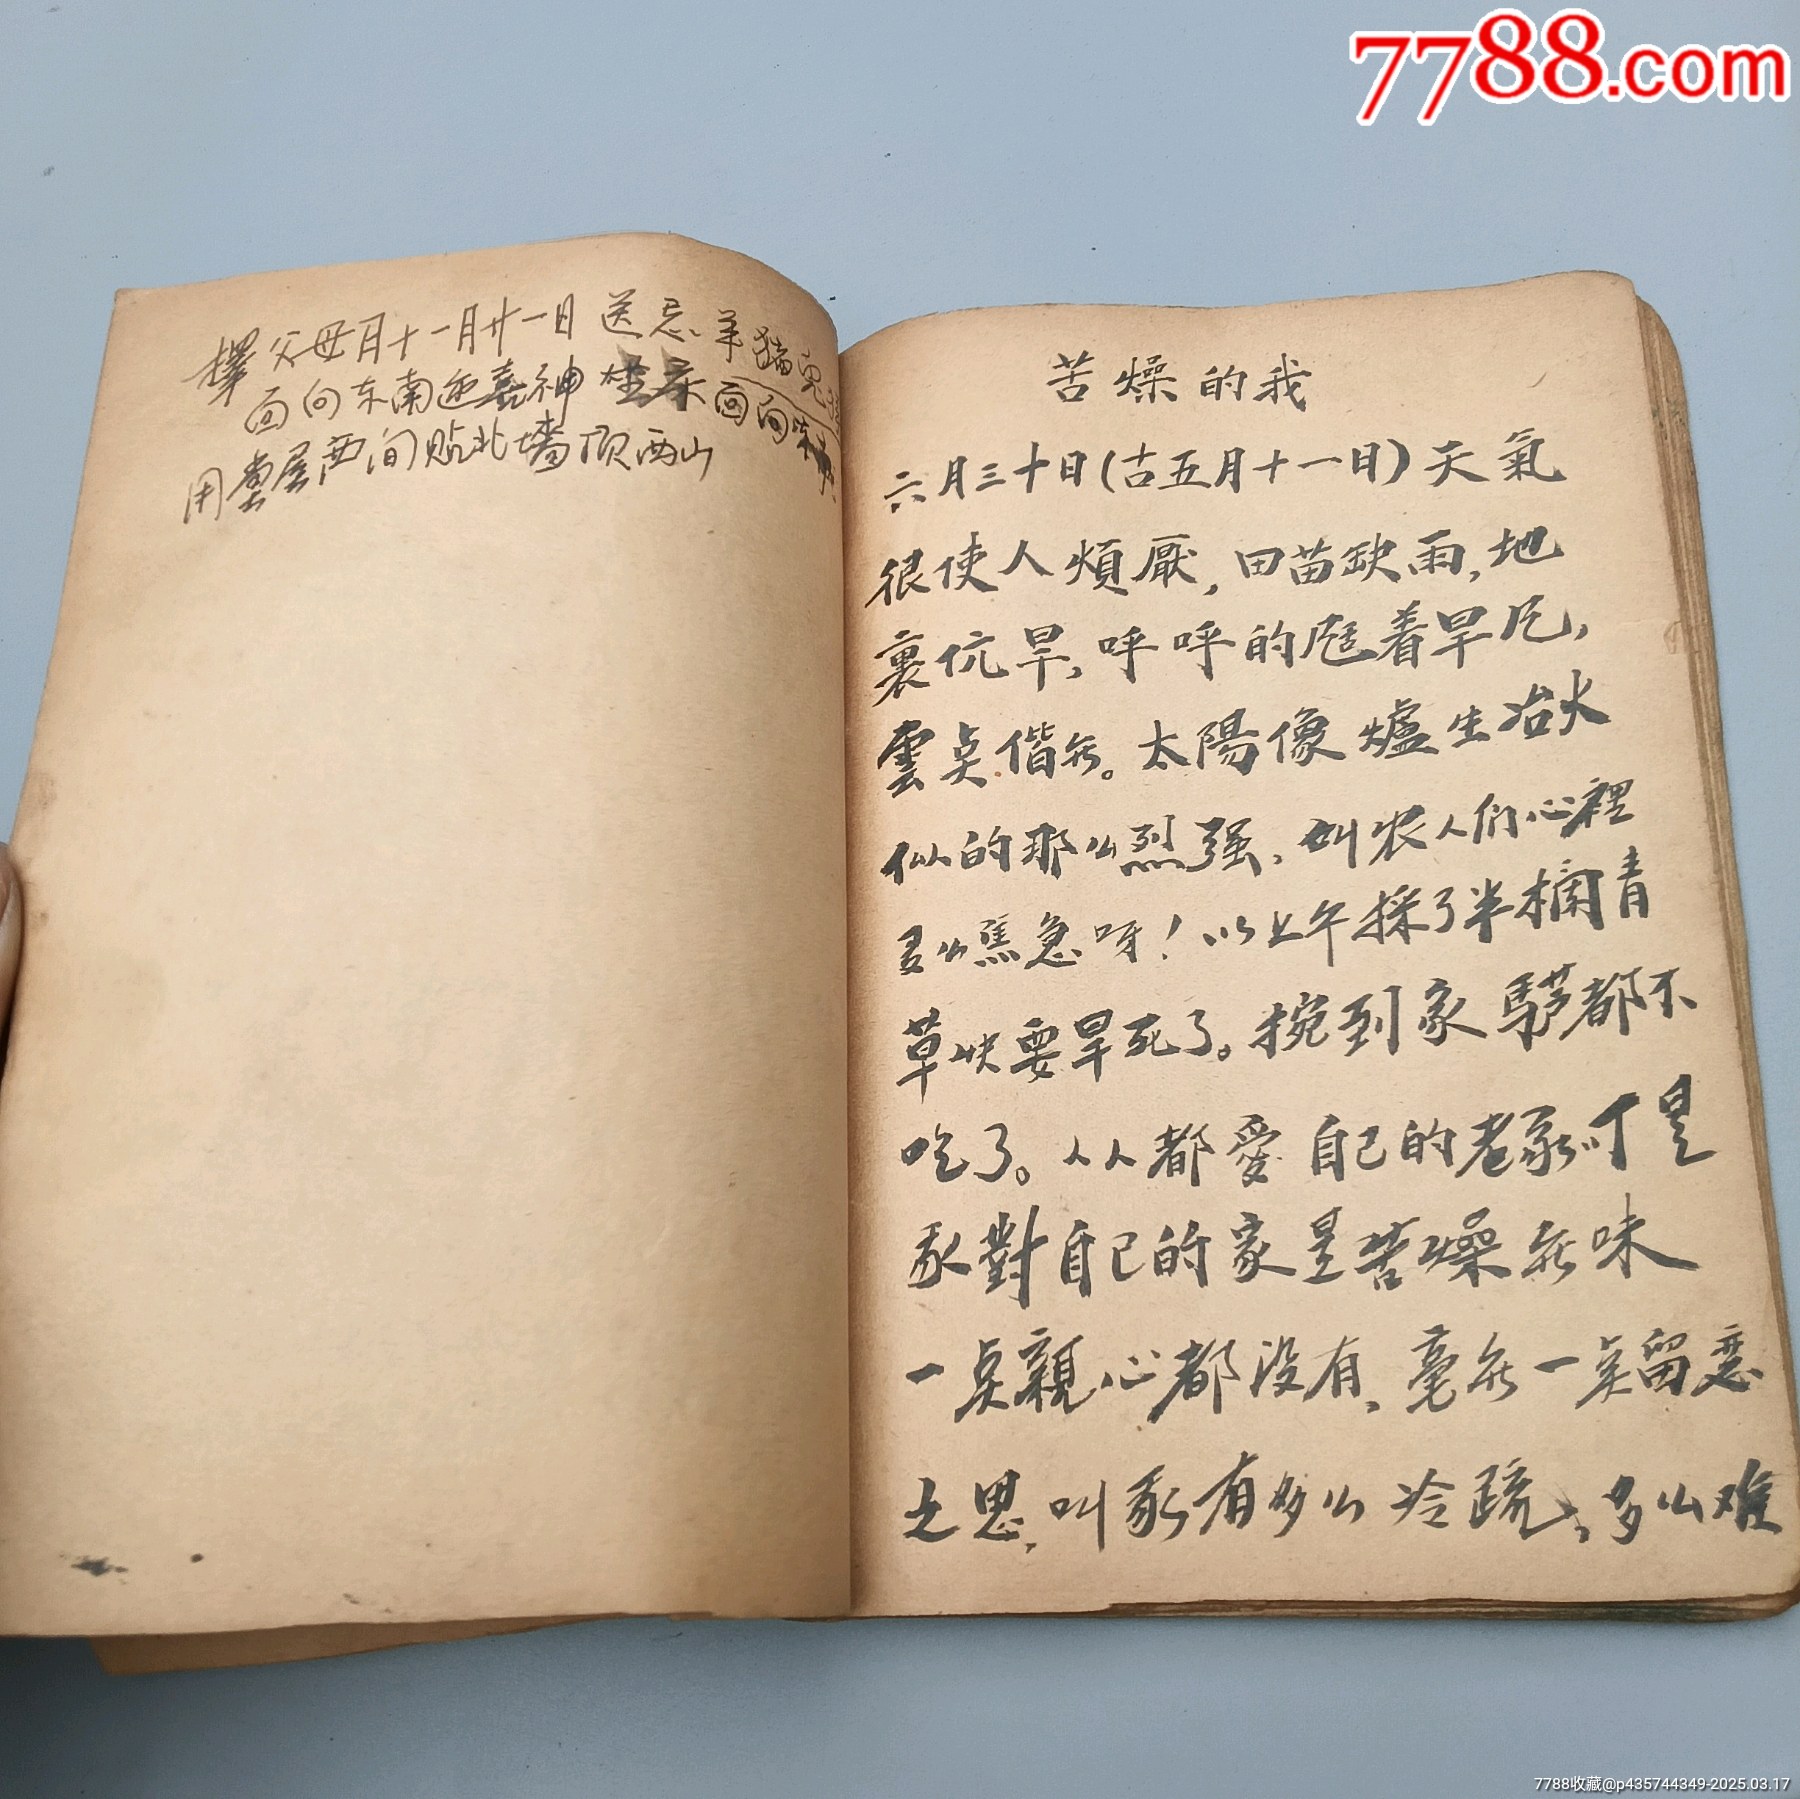 7788.com
擇父母月十一月廿一日送忌羊猪兔
面向东南迎喜神 面向东
用堂屋西间贴北墙顶西山
苦燥的我
六月三十日(古五月十一日)天氣
很使人煩厭,田苗缺雨,地
裏伉旱,呼呼的尶着旱厄,
雲点偕无。太陽像爐生冶火
似的那么烈强,叫农人们心裡
多么焦急呀!以上午採了半欄青
草快要旱死了。挽到家驴都不
吃了。人人都愛自己的老家,可是
我對自己的家是苦燥无味
一点親心都没有,毫无一点留恋
之思,叫我有多么冷疏,多么难
7788收藏@p435744349-2025.03.17